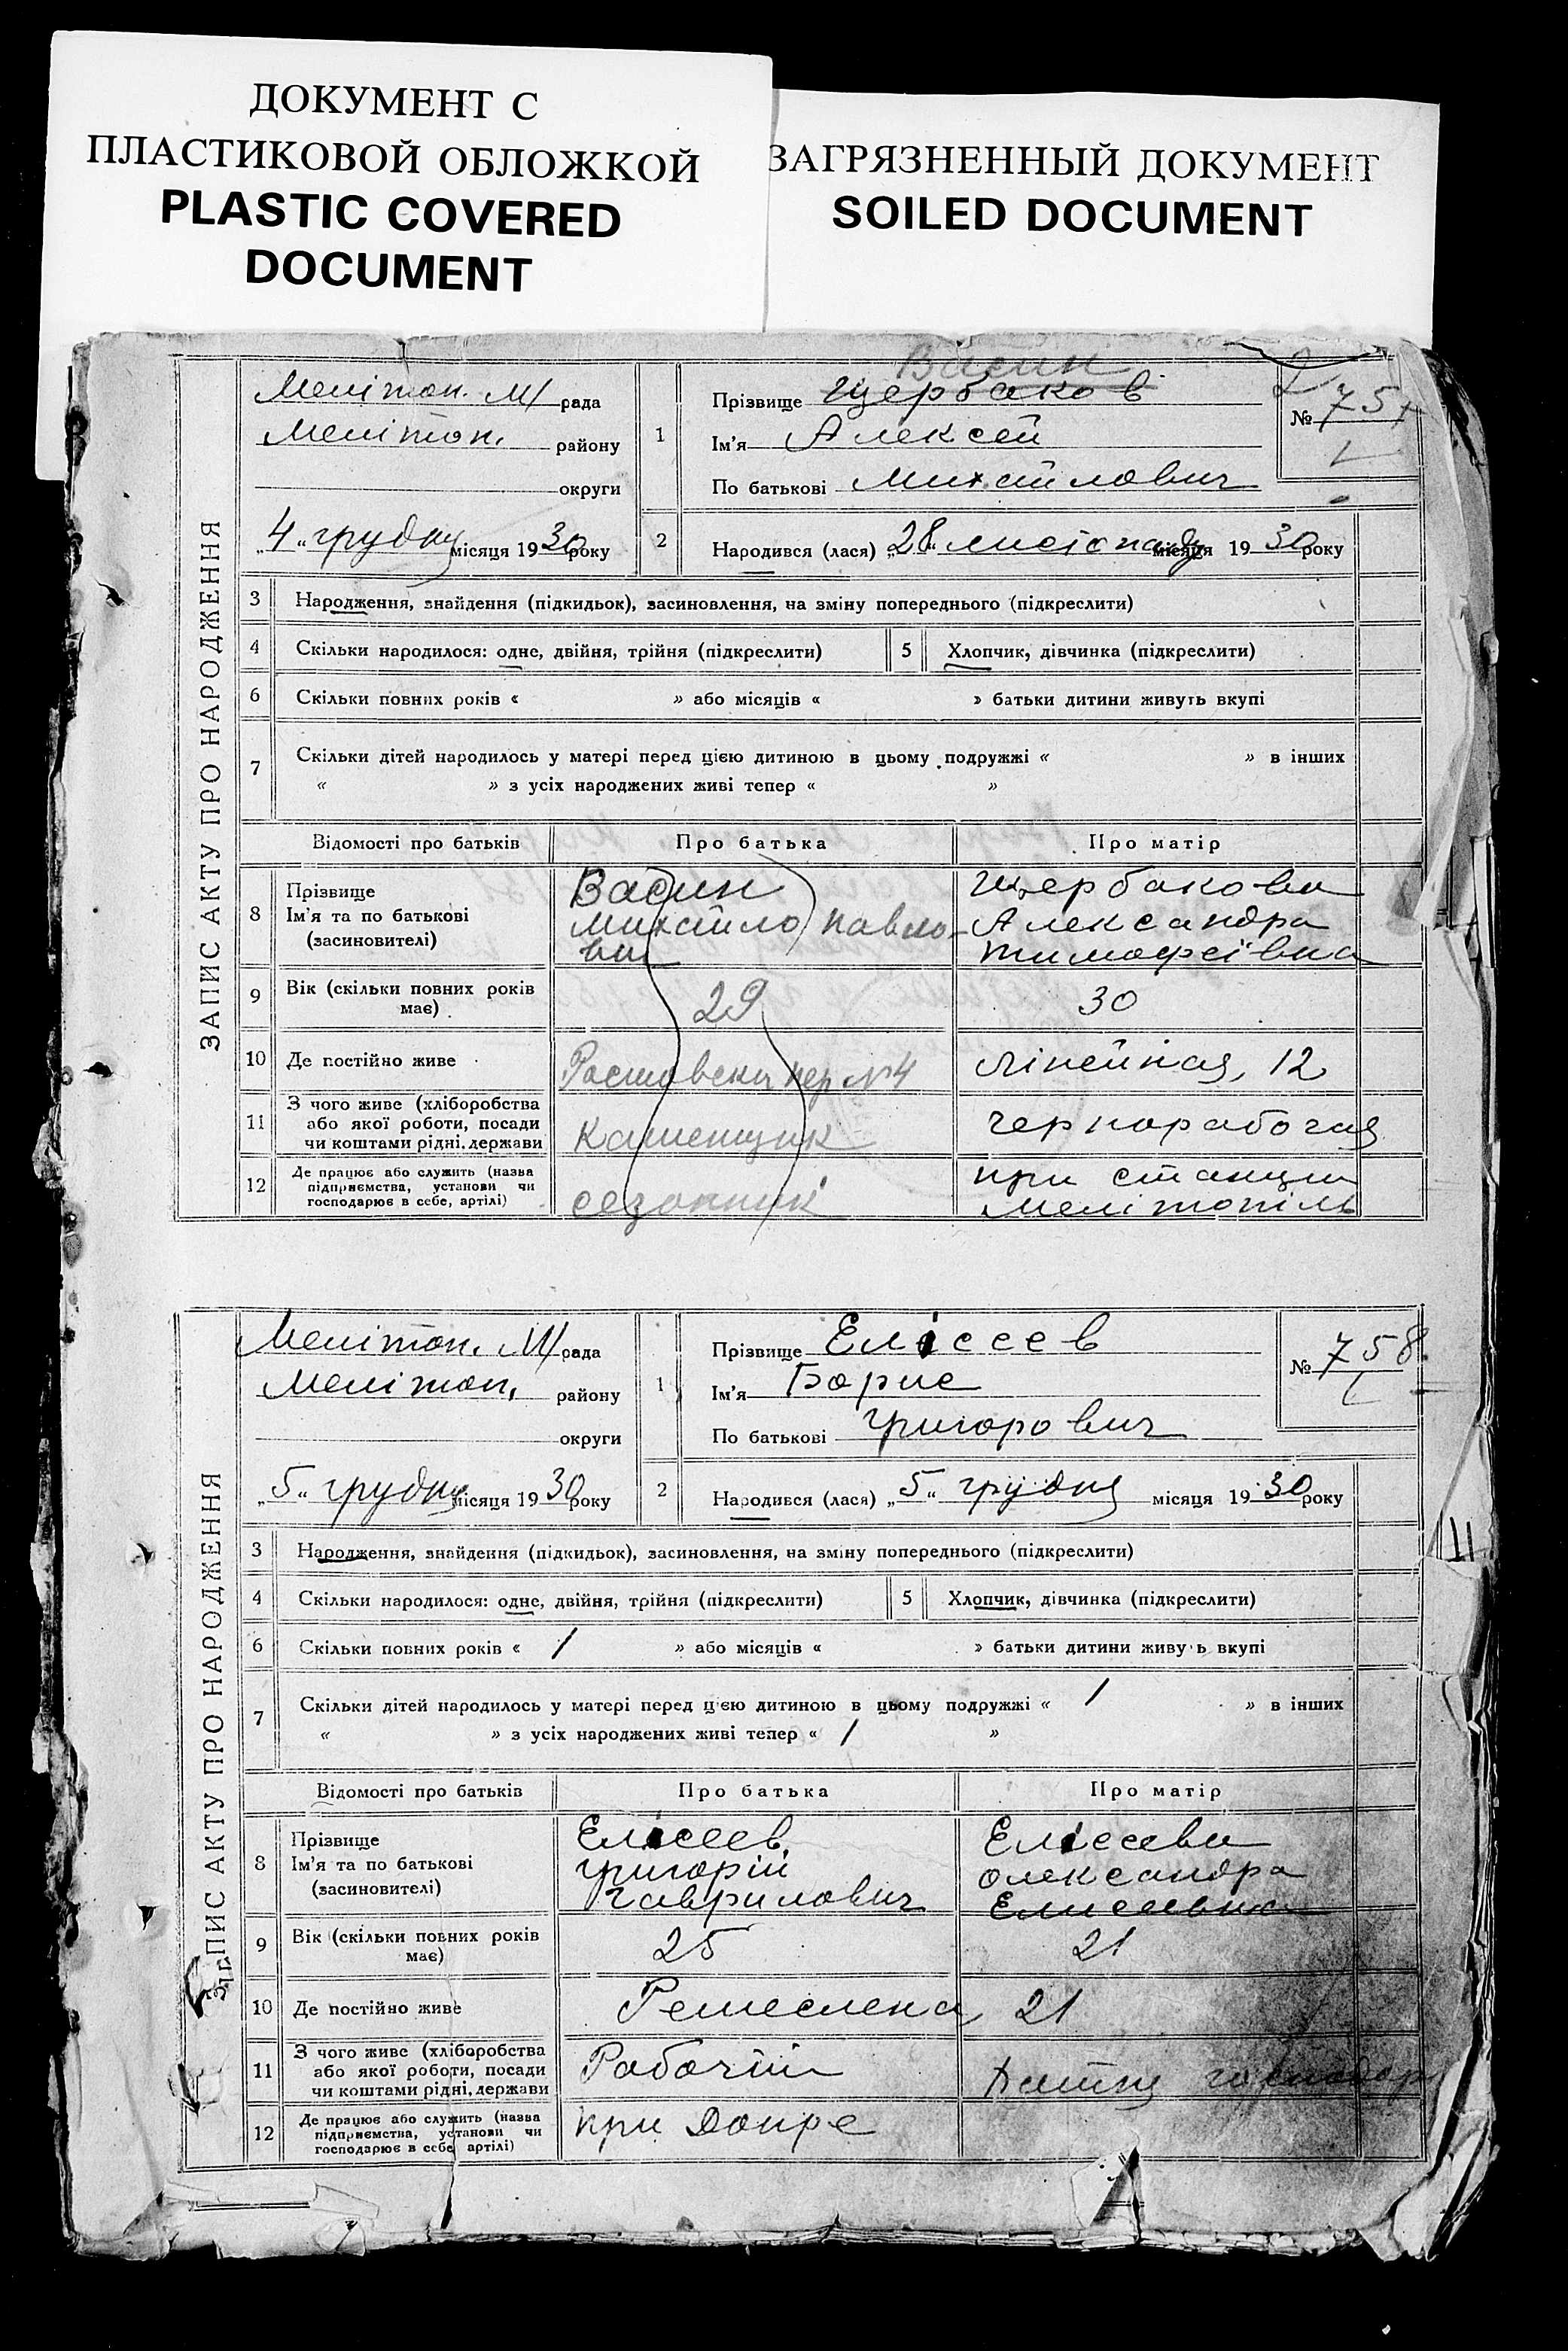 ДОКУМЕНТ С
ПЛАСТИКОВОЙ ОБЛОЖКОЙ
PLASTIC COVERED
DOCUMENT
ЗАГРЯЗНЕННЫЙ ДОКУМЕНТ
SOILED DOCUMENT
ЗАПИС АКТУ ПРО НАРОДЖЕННЯ
Мелітоп. М/ рада
Мелітоп. району
округи
„4“ грудня місяця 1930 року
Васин
1 Прізвище Щербаков
Ім'я Алексей
По батькові Михайлович
№ 757
2 Народився (лася) „28“ листопаду місяця 1930 року
3 Народження, знайдення (підкидьок), засиновлення, на зміну попереднього (підкреслити)
4 Скільки народилося: одне, двійня, трійня (підкреслити) 5 Хлопчик, дівчинка (підкреслити)
6 Скільки повних років « » або місяців « » батьки дитини живуть вкупі
7 Скільки дітей народилось у матері перед цією дитиною в цьому подружжі « » в інших
« » з усіх народжених живі тепер « »
Відомості про батьків Про батька Про матір
8 Прізвище
Ім'я та по батькові
(засиновителі)
Васин
Михайло Павло-
вич
Щербакова
Александра
Тимофеївна
9 Вік (скільки повних років
має)
29 30
10 Де постійно живе Ростовски пер №4 Лінейная, 12
11 З чого живе (хліборобства
або якої роботи, посади
чи коштами рідні, держави
Каменщик чернорабочая
12 Де працює або служить (назва
підприємства, установи чи
господарює в себе, артілі)
сезонник
при станции
Мелітопіль
ЗАПИС АКТУ ПРО НАРОДЖЕННЯ
Мелітоп. М/ рада
Мелітоп. району
округи
„5“ грудня місяця 1930 року
1 Прізвище Елісеев
Ім'я Борис
По батькові Григорович
№ 758
2 Народився (лася) „5“ грудня місяця 1930 року
3 Народження, знайдення (підкидьок), засиновлення, на зміну попереднього (підкреслити)
4 Скільки народилося: одне, двійня, трійня (підкреслити) 5 Хлопчик, дівчинка (підкреслити)
6 Скільки повних років « 1 » або місяців « » батьки дитини живуть вкупі
7 Скільки дітей народилось у матері перед цією дитиною в цьому подружжі « 1 » в інших
« » з усіх народжених живі тепер « 1 »
Відомості про батьків Про батька Про матір
8 Прізвище
Ім'я та по батькові
(засиновителі)
Елісеев
Григорій
Гаврилович
Елісеева
Олександра
Елисеевна
9 Вік (скільки повних років
має)
25 21
10 Де постійно живе Ремеслена, 21
11 З чого живе (хліборобства
або якої роботи, посади
чи коштами рідні, держави
Рабочій
12 Де працює або служить (назва
підприємства, установи чи
господарює в себе, артілі)
при Допре